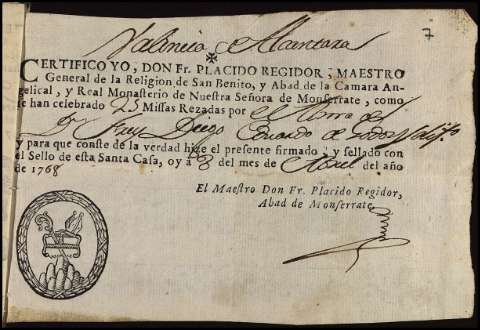 7
Valencia de Alcantara
CERTIFICO YO, DON Fr. PLACIDO REGIDOR; MAESTRO
General de la Religion de San Benito, y Abad de la Camara An-
gelical, y Real Monasterio de Nuestra Señora de Monserrate, como
se han celebrado 25 Missas Rezadas por el Alma del
Dr Frey Diego Eduardo de
y para que conste de la verdad hize el presente firmado, y sellado con
el Sello de esta Santa Casa, oy á 8 del mes de Abril del año
de 1768
El Maestro Don Fr. Placido Regidor,
Abad de Monserrate